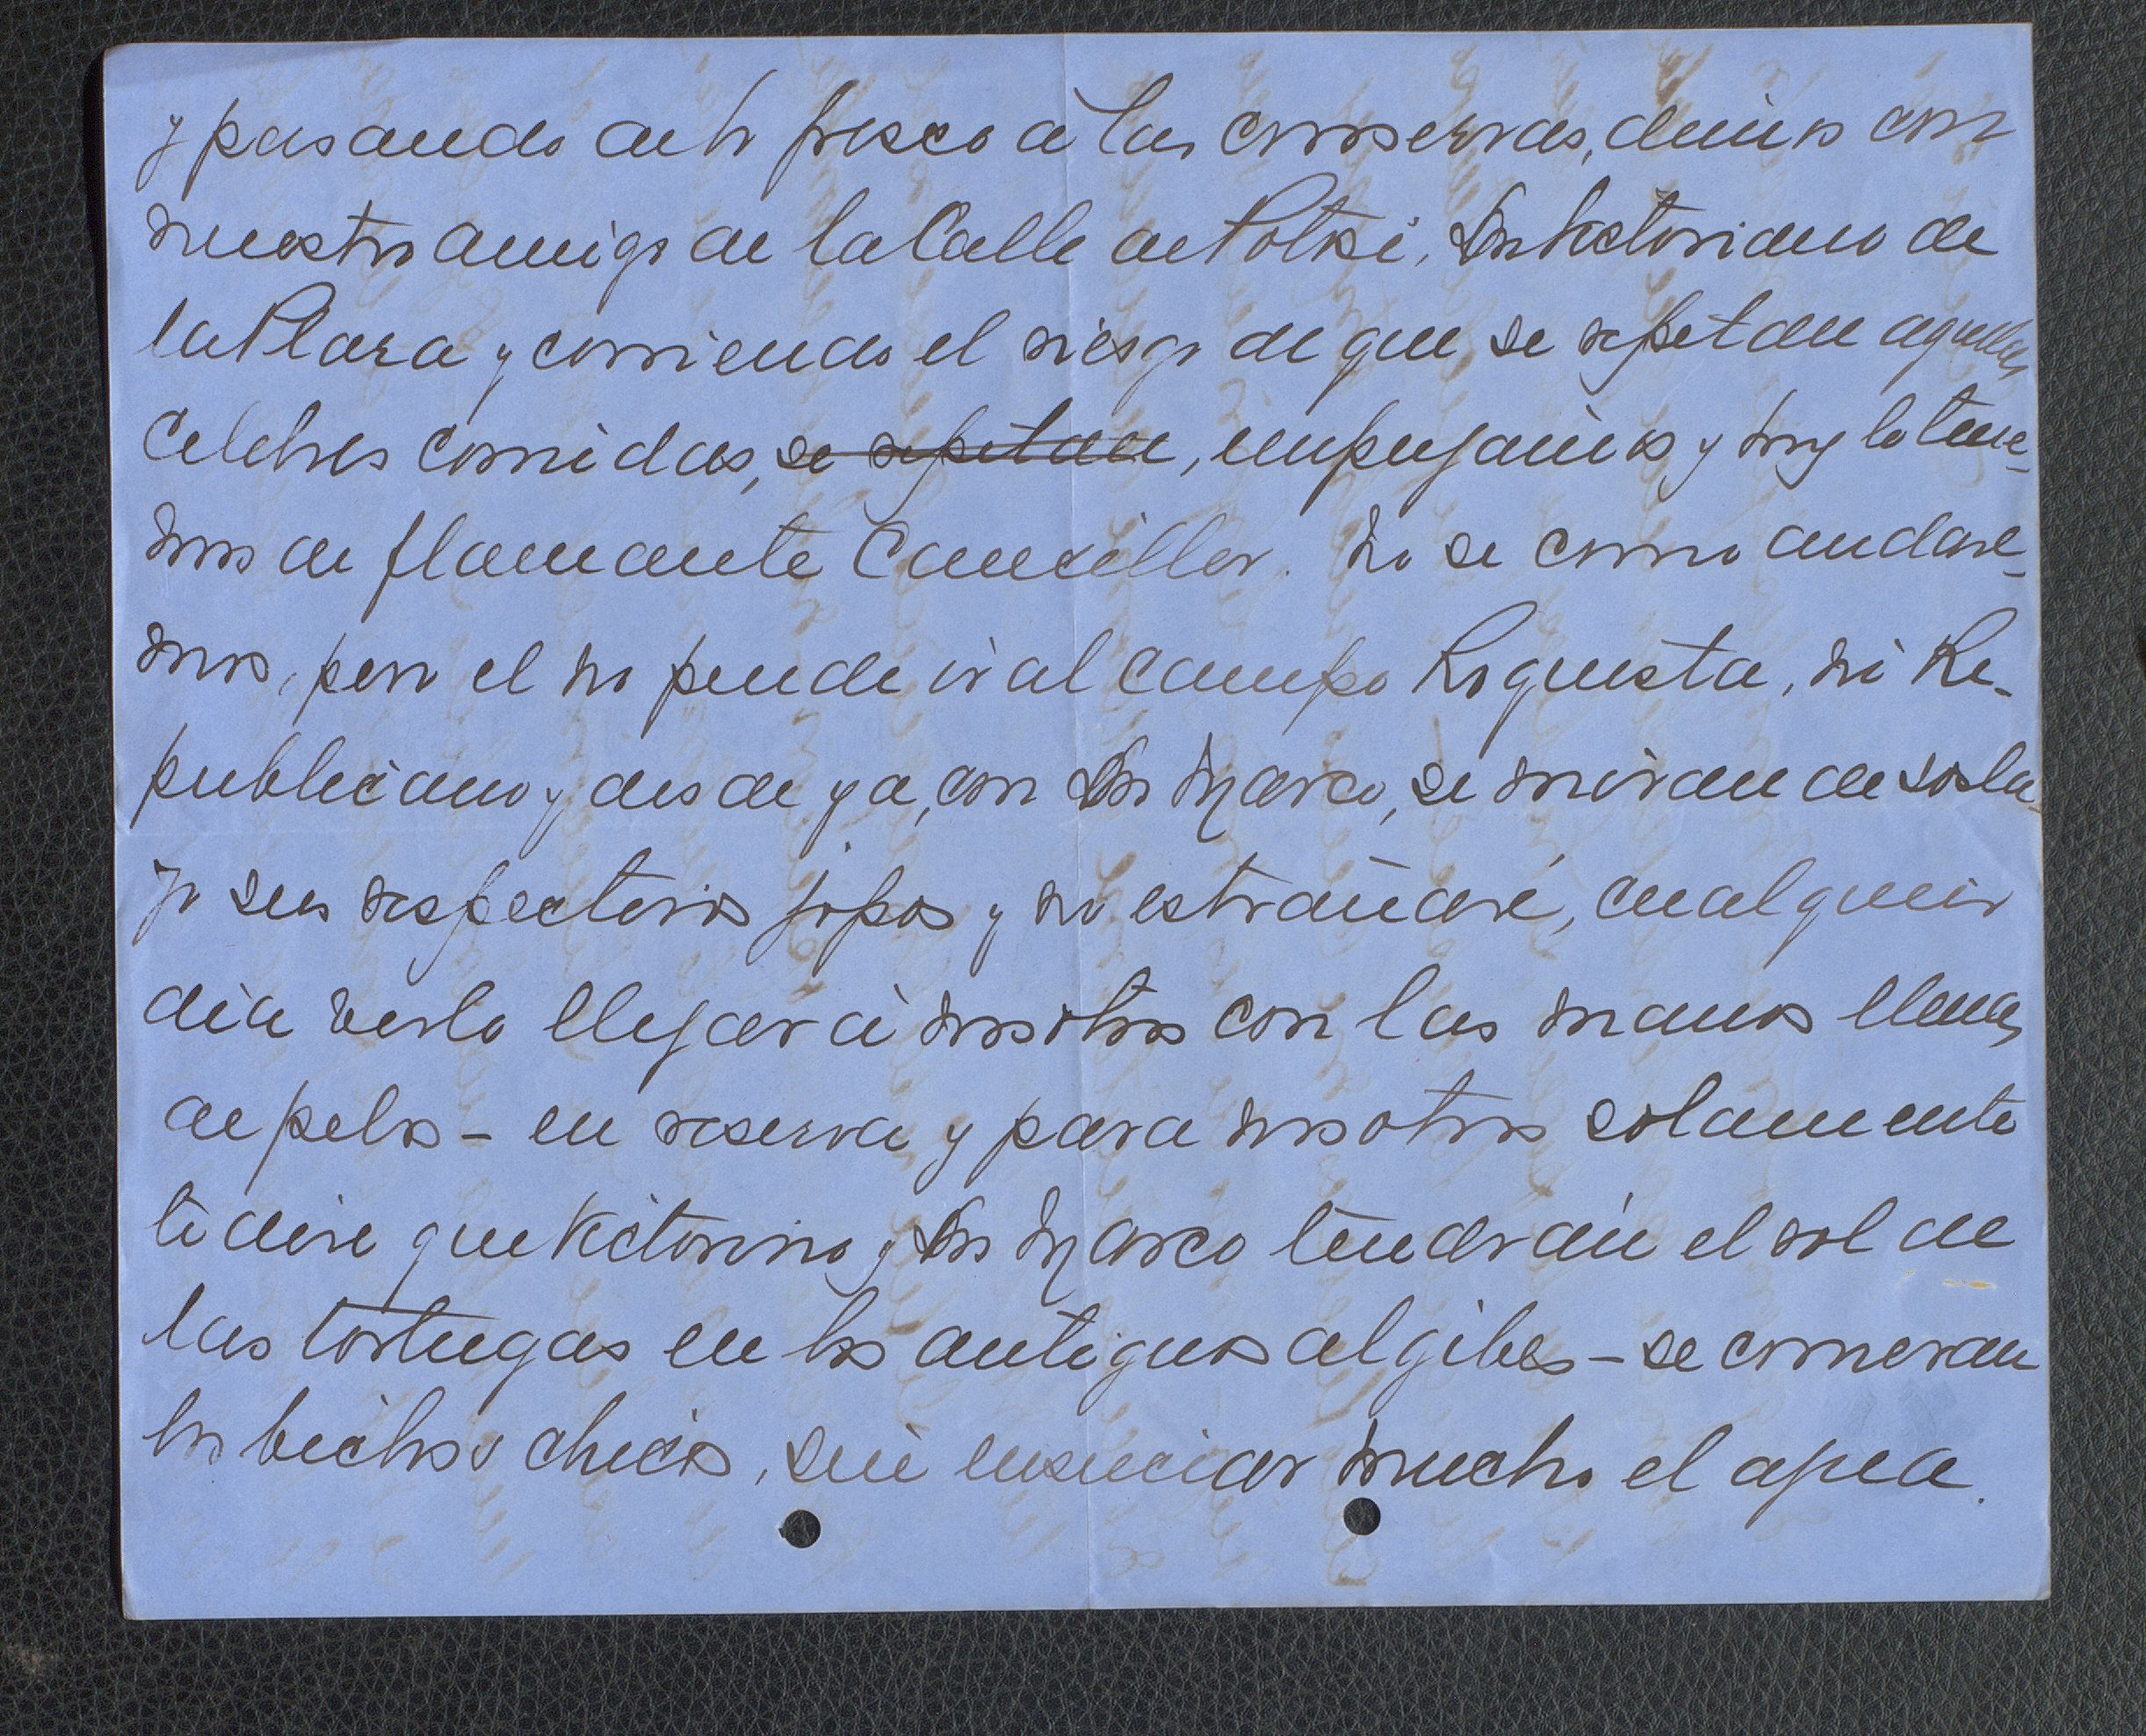 y pasando de lo fresco a las conservas, dimos con
nuestro amigo de la Calle de Potosi, Don Victoriano de
la Plaza y corriendo el riesgo de que se repitan aquellas
celebres comidas, se repitan, empujamos y hoy lo tene-
mos de flamante Canciller. No se como andare-
mos, pero el no puede ir al campo Roquista, ni Re-
publicano y desde ya, con Don Marco, se miran de sosla-
yo sus respectivos jopos y no estrañaré, cualquier
dia verlo llegar á nosotros con las manos llenas
de pelos - en reserva y para nosotros solamente
te dire que Victorino y Don Marco tendrán el rol de
las tortugas en los antiguos algibes - se comeran
los bichos chicos, sin ensuciar mucho el agua.